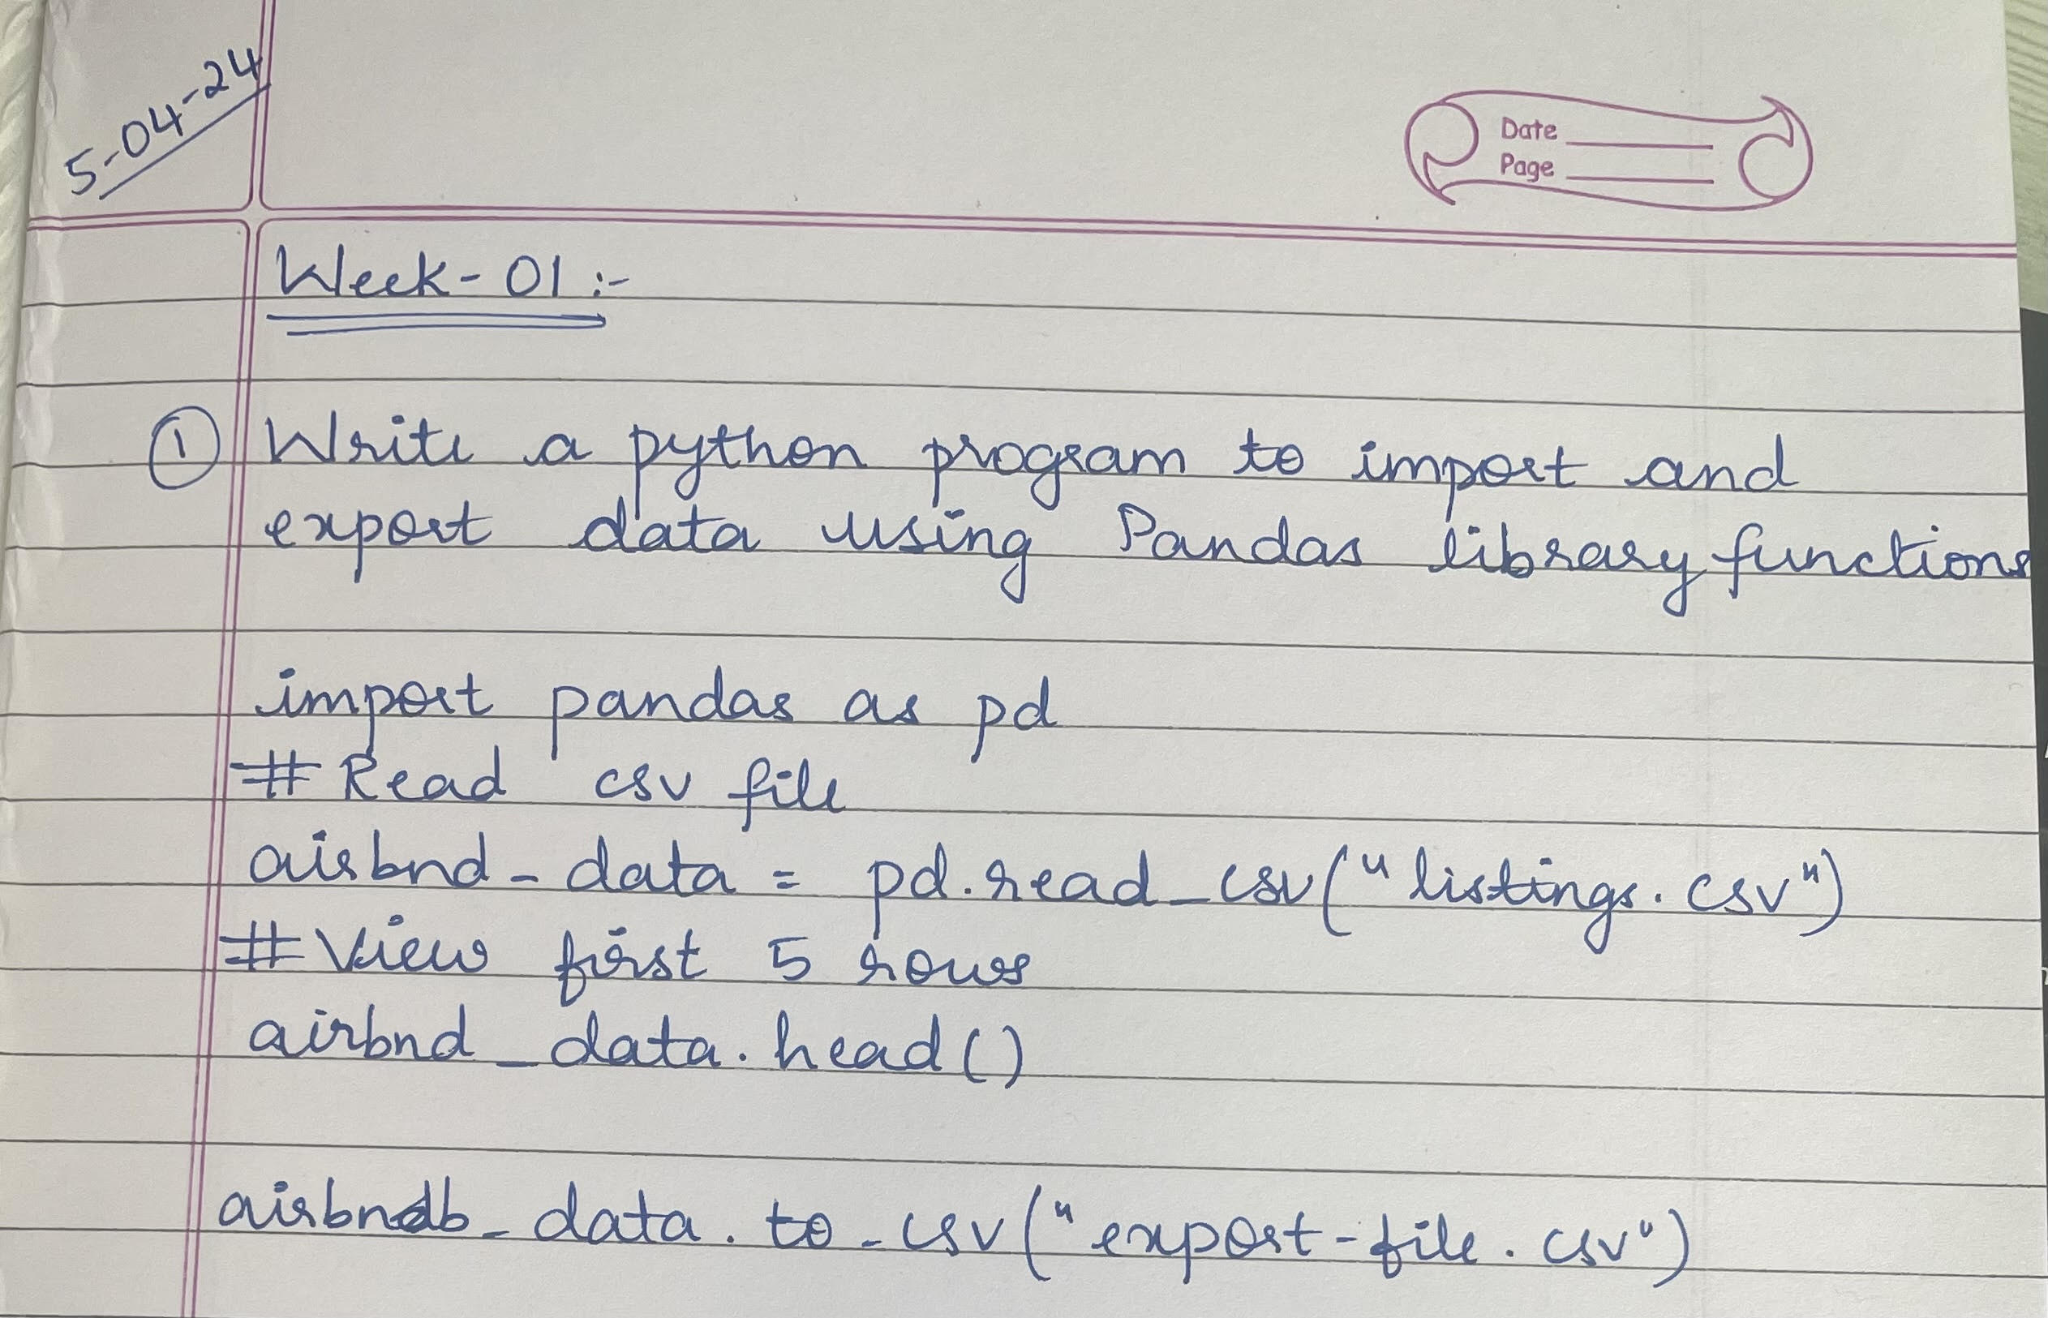 5-04-24
Date
Page
Week-01:-
① Write a python program to import and
export data using Pandas library functions
import pandas as pd
# Read csv file
airbnd_data = pd.read_csv("listings.csv")
# View first 5 rows
airbnd_data.head()
airbndb_data.to_csv("export-file.csv")